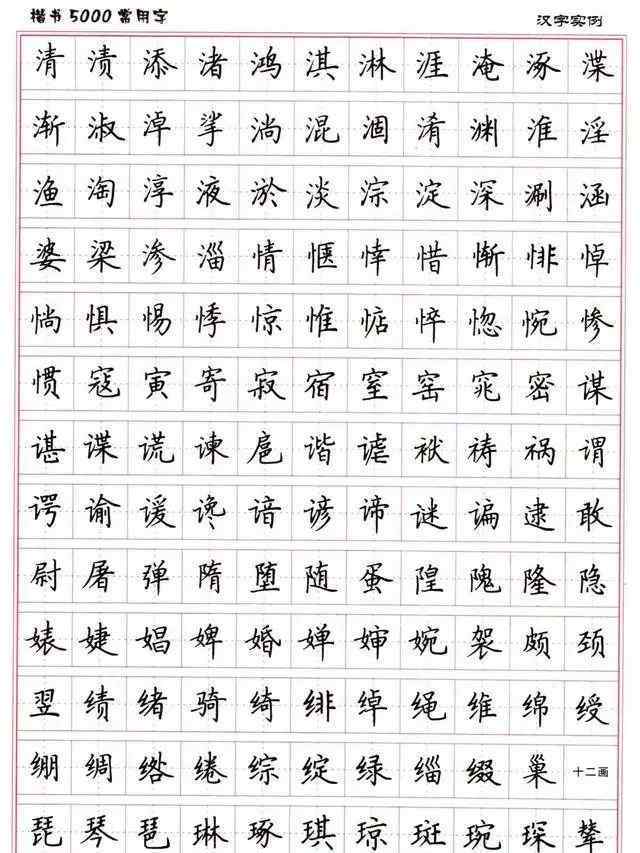 楷书5000常用字 汉字实例
清渍添渚鸿淇淋涯淹涿渫
渐淑淖挲淌混涸淆渊淮淫
渔淘淳液淤淡淙淀深涮涵
婆梁渗淄情惬悻惜惭悱悼
惝惧惕悸惊惟惦悴惚惋惨
惯寇寅寄寂宿窒窑窕密谋
谌谍谎谏扈谐谑袱祷祸谓
谔谕谖谗谙谚谛谜谝逮敢
尉屠弹隋堕随蛋隍隗隆隐
婊婕娼婢婚婵婶婉袈颇颈
翌绩绪骑绮绯绰绳维绵绶
绷绸绺绻综绽绿缁缀巢十二画
琵琴琶琳琢琪琼斑琬琛辇